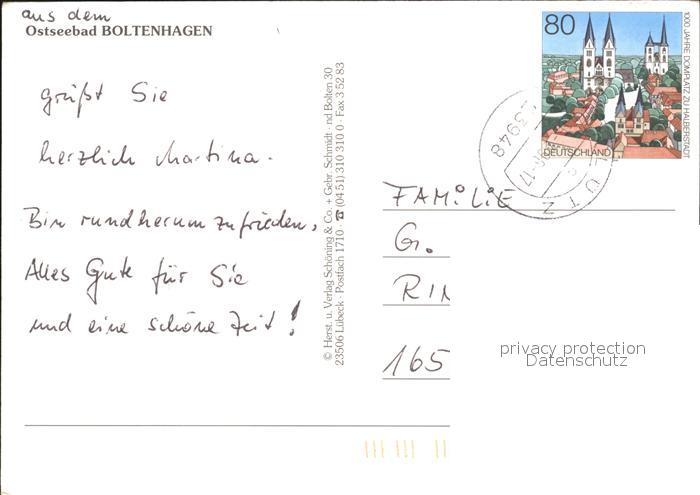 aus dem
Ostseebad BOLTENHAGEN
grüßt Sie
herzlich Martina.
Bin rundherum zufrieden,
Alles Gute für Sie
und eine schöne Zeit!
© Herst. u. Verlag Schöning & Co. + Gebr. Schmidt · nd Bolten 30
23506 Lübeck · Postfach 1710 · ☎ (04 51) 310 310 0 · Fax 3 52 83
80
1000 JAHRE DOMPLATZ ZU HALBERSTADT
DEUTSCHLAND
23948
-17
LÜTZ
FAMILIE
G.
RIN
165
privacy protection
Datenschutz